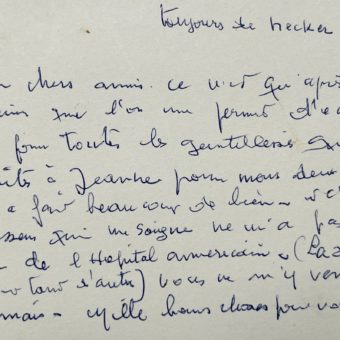 toujours de Necker
chers amis. ce n'est qu'aprè
que l'on me permet d'éc
pour toutes les gentillesses
its à Jeanne pour nous deux
a fait beaucoup de bien
qui me soigne ne m'a pas
de l'Hôpital américain (
tant d'autres) vous ne m'y ver
mais - Mille bonnes choses pour vo